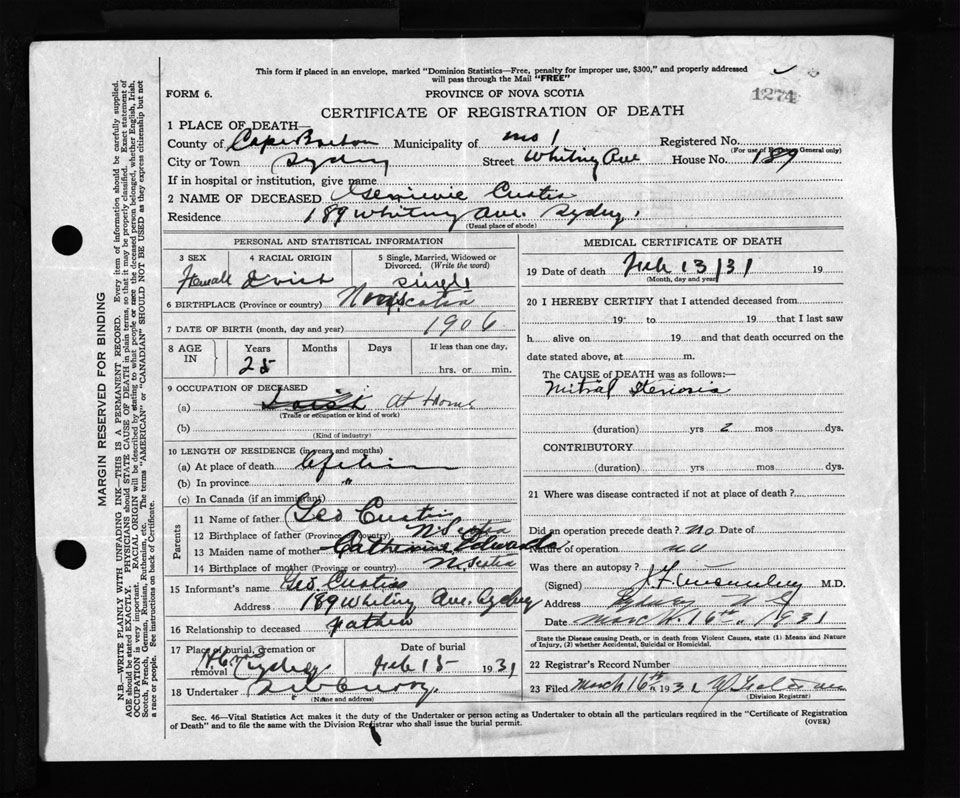 This form if placed in an envelope, marked "Dominion Statistics—Free, penalty for improper use, $300," and properly addressed
will pass through the Mail "FREE"
1274
FORM 6.
PROVINCE OF NOVA SCOTIA
CERTIFICATE OF REGISTRATION OF DEATH
1 PLACE OF DEATH—
County of Cape Breton Municipality of no 1 Registered No.
(For use of Registrar General only)
City or Town Sydney Street Whitney Ave House No. 189
If in hospital or institution, give name
2 NAME OF DECEASED
Residence 189 Whitney Ave. Sydney.
(Usual place of abode)
PERSONAL AND STATISTICAL INFORMATION
3 SEX
4 RACIAL ORIGIN
5 Single, Married, Widowed or
Divorced. (Write the word)
Female single
6 BIRTHPLACE (Province or country) Nova Scotia
7 DATE OF BIRTH (month, day and year) 1906
8 AGE
IN
Years Months Days If less than one day.
25 hrs. or min.
9 OCCUPATION OF DECEASED
(a) At Home
(Trade or occupation or kind of work)
(b)
(Kind of industry)
10 LENGTH OF RESIDENCE (in years and months)
(a) At place of death Lifetime
(b) In province "
(c) In Canada (if an immigrant)
Parents
11 Name of father Geo
12 Birthplace of father (Province or country) N Scotia
13 Maiden name of mother Catherine Edwards
14 Birthplace of mother (Province or country) N. Scotia
15 Informant's name Geo
Address 189 Whitney Ave. Sydney
16 Relationship to deceased Father
17 Place of burial, cremation or
removal Sydney
Date of burial
Feb 15 1931
18 Undertaker
(Name and address)
MEDICAL CERTIFICATE OF DEATH
19 Date of death Feb 13/31 19
(Month, day and year)
20 I HEREBY CERTIFY that I attended deceased from
19 to 19 that I last saw
h alive on 19 and that death occurred on the
date stated above, at m.
The CAUSE of DEATH was as follows:—
Mitral Stenosis
(duration) yrs 2 mos dys.
CONTRIBUTORY
(duration) yrs mos dys.
21 Where was disease contracted if not at place of death?
Did an operation precede death? no Date of
Nature of operation no
Was there an autopsy?
(Signed) M.D.
Address Sydney N S
Date March 16th, 1931
State the Disease causing Death, or in death from Violent Causes, state (1) Means and Nature
of Injury, (2) whether Accidental, Suicidal or Homicidal.
22 Registrar's Record Number
23 Filed March 16th 1931
(Division Registrar)
Sec. 46—Vital Statistics Act makes it the duty of the Undertaker or person acting as Undertaker to obtain all the particulars required in the "Certificate of Registration
of Death" and to file the same with the Division Registrar who shall issue the burial permit.
(OVER)
MARGIN RESERVED FOR BINDING
N.B.—WRITE PLAINLY WITH UNFADING INK—THIS IS A PERMANENT RECORD. Every item of information should be carefully supplied.
AGE should be stated EXACTLY. PHYSICIANS should STATE CAUSE OF DEATH in plain terms, so that it may be properly classified. Exact statement of
OCCUPATION is very important. RACIAL ORIGIN will be described by stating to what people or race the deceased person belonged, whether English, Irish,
Scotch, French, German, Russian, Ruthenian, etc. The terms "AMERICAN" or "CANADIAN" SHOULD NOT BE USED as they express citizenship but not
a race or people. See instructions on back of Certificate.